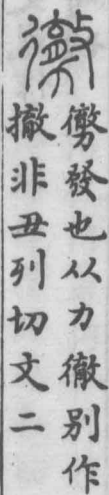 勶
勶發也从力徹别作
撤非丑列切文二